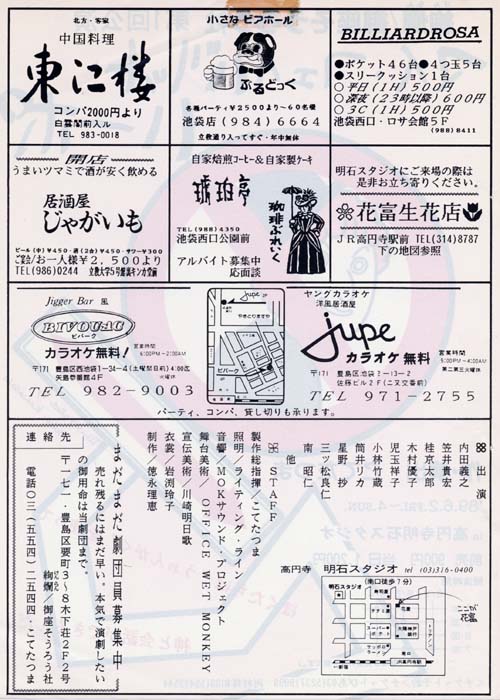 北方・客家
中国料理
東江楼
コンパ2000円より
白雲閣前入ル
TEL 983-0018
小さな ビアホール
ぶるどっく
各種パーティ¥2500より～60名様
池袋店(984)6664
立教通り入ってすぐ・年中無休
BILLIARDROSA
●ポケット46台●4つ玉5台
●スリークッション1台
○平日(1H)500円
○深夜(23時以降)600円
○3C(1H)500円
池袋西口・ロサ会館5F
(988)8411
開店
うまいツマミで酒が安く飲める
居酒屋
じゃがいも
ビール(中)¥450・酒(2合)¥450・サワー¥300
ご宴会/お一人様¥2,500より
TEL(986)0244
自家焙煎コーヒー&自家製ケーキ
琥珀亭
珈琲ぶれいく
TEL(988)4350
池袋西口公園前
アルバイト募集中
応面談
明石スタジオにご来場の際は
是非お立ち寄りください。
花富生花店
JR高円寺駅前 TEL(314)8787
下の地図参照
Jigger Bar 風
BIVOUAC
ビバーク
カラオケ無料!
営業時間
6:00PM~2:00AM
〒171 豊島区西池袋1-34-4(土曜祭日前)4:00迄
矢島京番館4F 火曜休
TEL 982-9003
jupe
やきとりますや
ビバーク
ヤングカラオケ
洋風居酒屋
jupe
カラオケ無料
営業時間
5:00PM~4:00AM
第二第三火曜休
〒171 豊島区池袋2-13-2
佐藤ビル2F(二又交番前)
TEL 971-2755
パーティ、コンパ、貸し切りも承ります。
出演
内田義之
笠井貴宏
桂京太郎
木村禎子
児玉祥優
小林蔵子
筒井リカ
星野抄
三ッ松良仁
南昭仁
他
STAFF
製作総指揮/こてたつま
照明/ライティング・ライン
音響/MOKサウンド・プロジェクト
舞台美術/OFFICE WET MONKEY
宣伝美術/川崎明日歌
衣裳/岩渕玲子
制作/徳永理恵
まだまだ劇団員募集中
売れ残るにはまだ早い。本気で演劇したい
の御用命は当劇団まで。
連絡先
〒一七一・豊島区要町3～8木下荘2F2号
絢爛/御座そうろう社
電話〇三(五五四)二五四四・こてたつま
高円寺 明石スタジオ tel (03)316-0400
(南口徒歩7分)
明石スタジオ
ここが
花富
JR高円寺駅